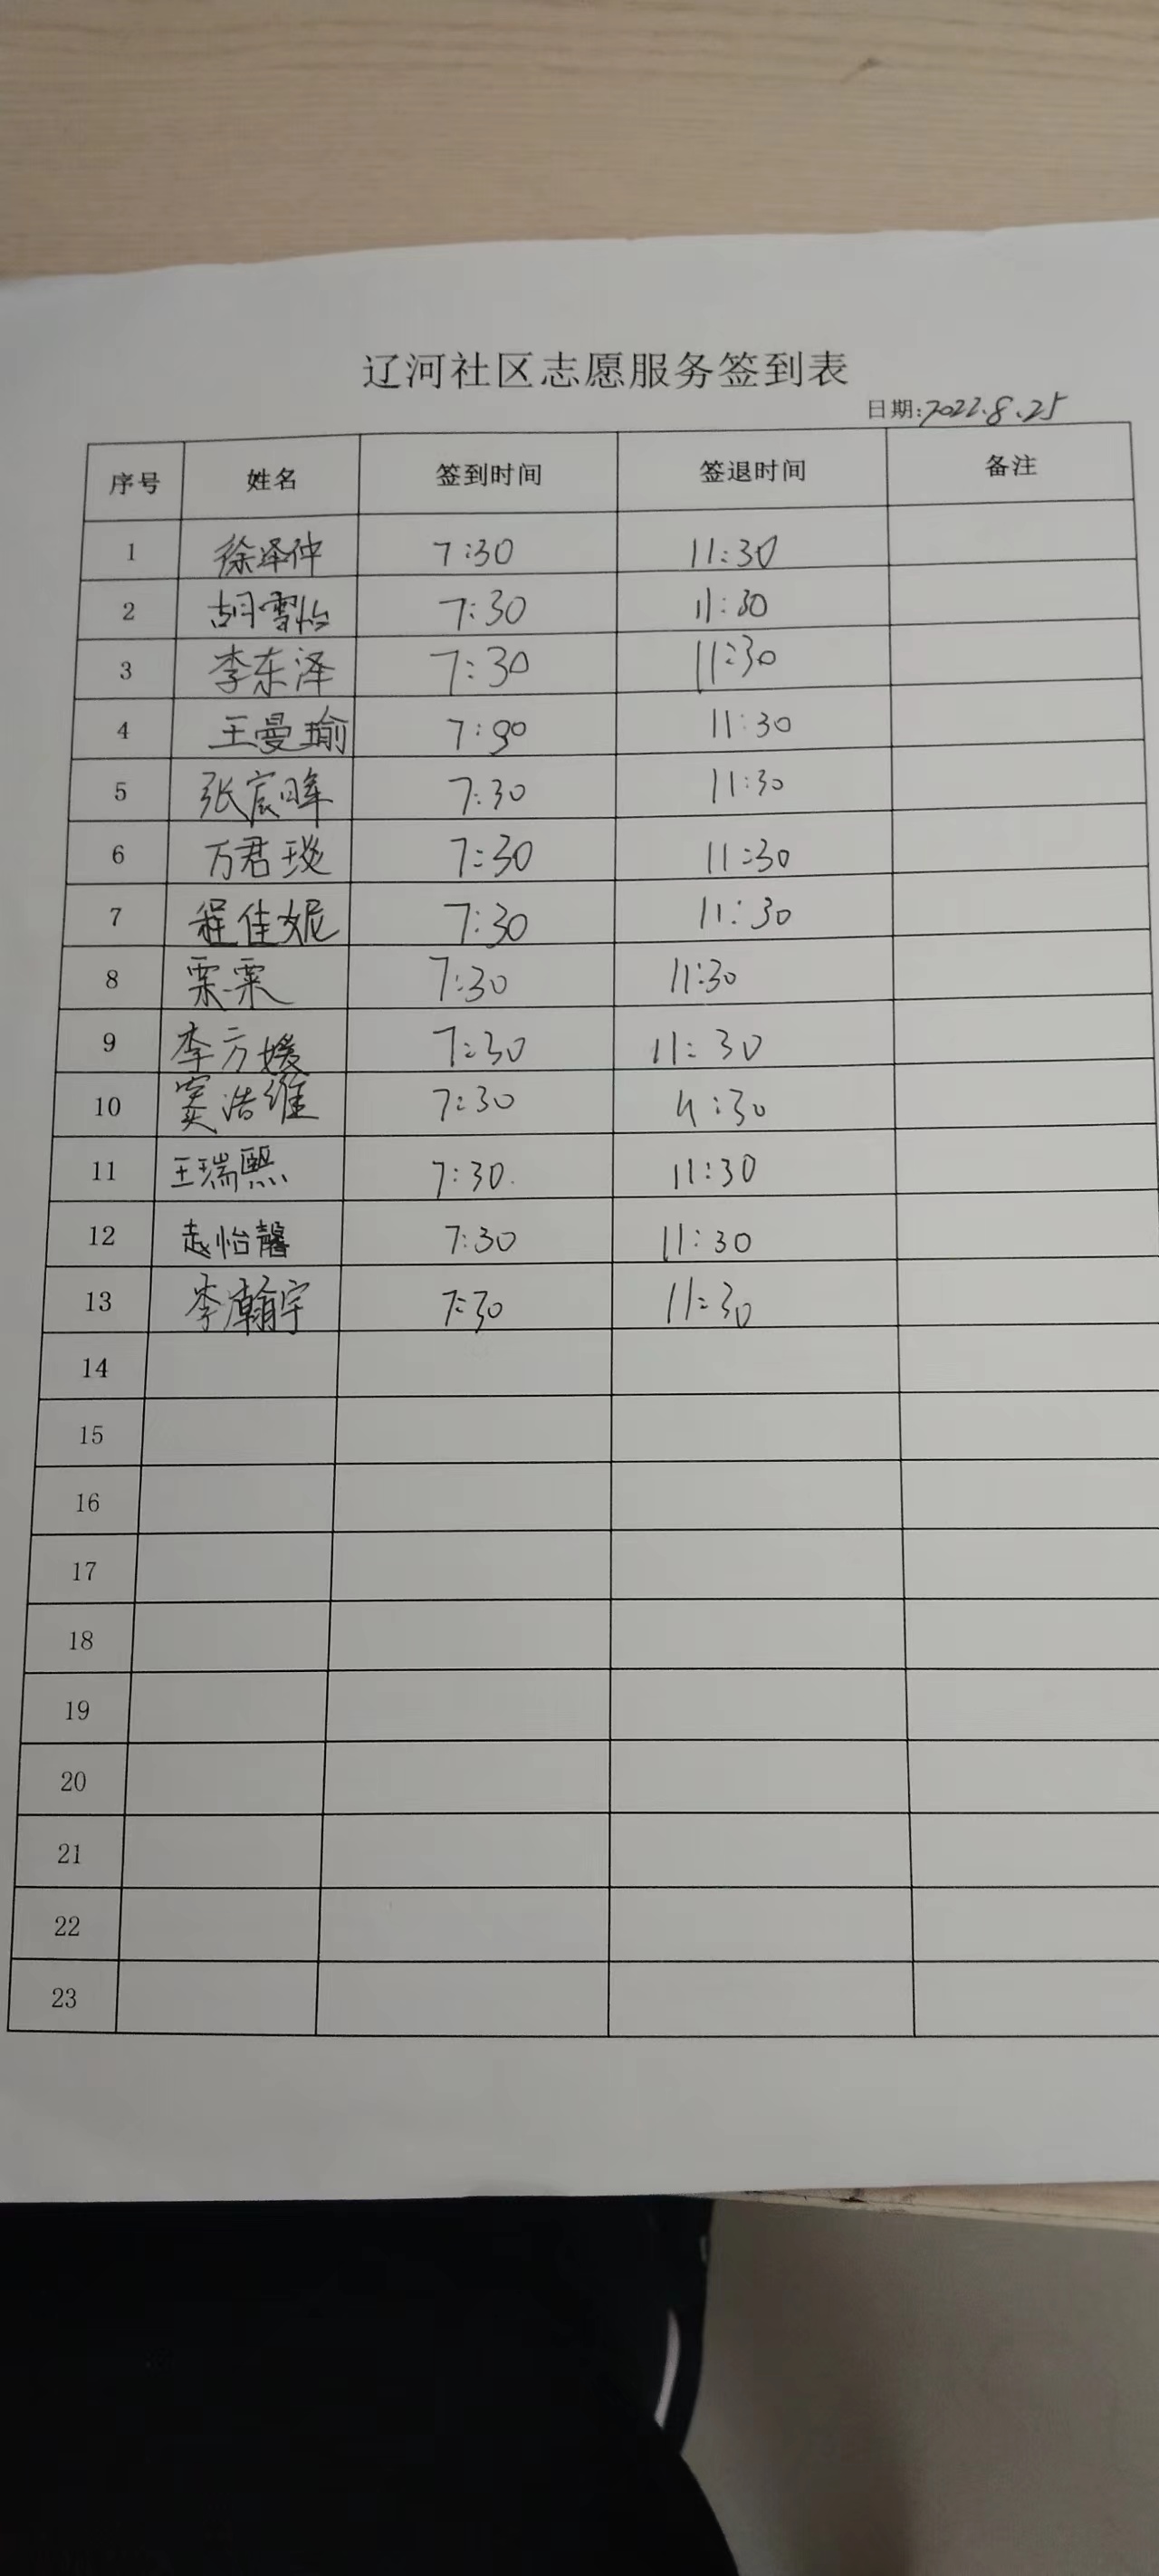 辽河社区志愿服务签到表
日期:2022.8.25
序号 姓名 签到时间 签退时间 备注
1 徐泽仲 7:30 11:30
2 胡雪怡 7:30 11:30
3 李东泽 7:30 11:30
4 王曼瑜 7:30 11:30
5 张宸晖 7:30 11:30
6 万君琰 7:30 11:30
7 程佳妮 7:30 11:30
8 7:30 11:30
9 李方媛 7:30 11:30
10 窦浩维 7:30 11:30
11 王瑞熙 7:30. 11:30
12 赵怡馨 7:30 11:30
13 李瀚宇 7:30 11:30
14
15
16
17
18
19
20
21
22
23